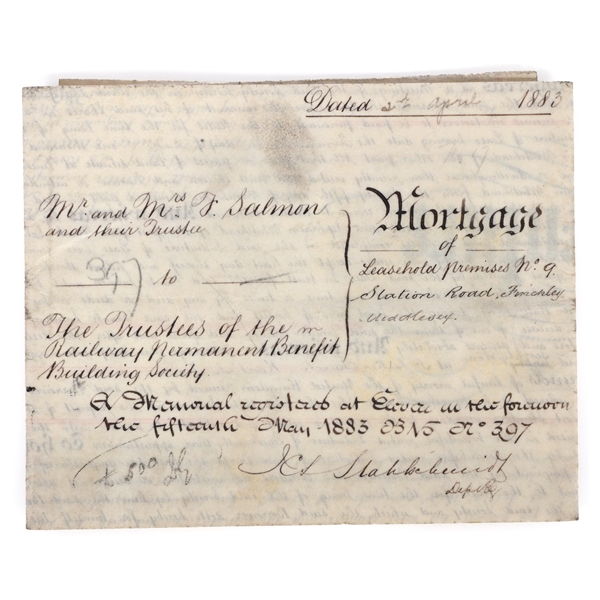 Dated 2th April 1883
Mr. and Mrs F. Salmon
and their Trustee
397
to
The Trustees of the
Railway Permanent Benefit
Building Society.
Mortgage
of
Leasehold premises No. 9
Station Road, Finchley
Middlesex.
A Memorial registered at Eleven in the forenoon
the fifteenth May 1883 B15 No 397
£500
Depy